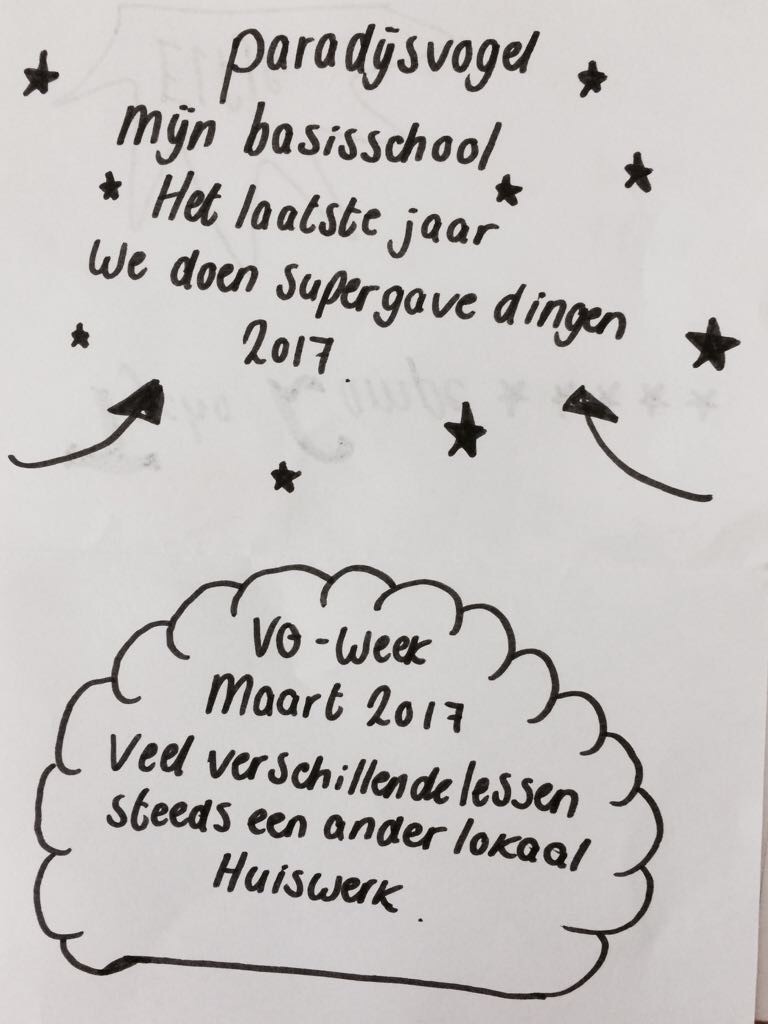 paradijsvogel
mijn basisschool
Het laatste jaar
We doen supergave dingen
2017.
VO-Week
Maart 2017
Veel verschillende lessen
steeds een ander lokaal
Huiswerk.